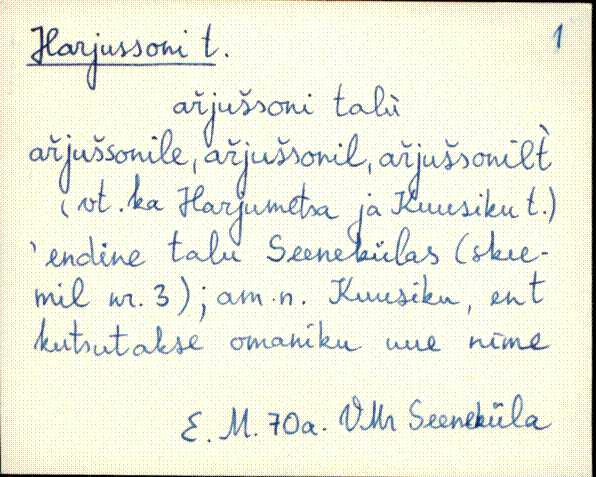 Harjussoni t. 1
ařjušsoni talù
ařjušsonile, ařjušsonil, ařjušsonilt̀
(vt. ka Harjumetsa ja Kuusiku t.)
'endine talu Seenekülas (skee-
mil nr. 3); am. n. Kuusiku, ent
kutsutakse omaniku uue nime
E. M. 70a. VMr Seeneküla